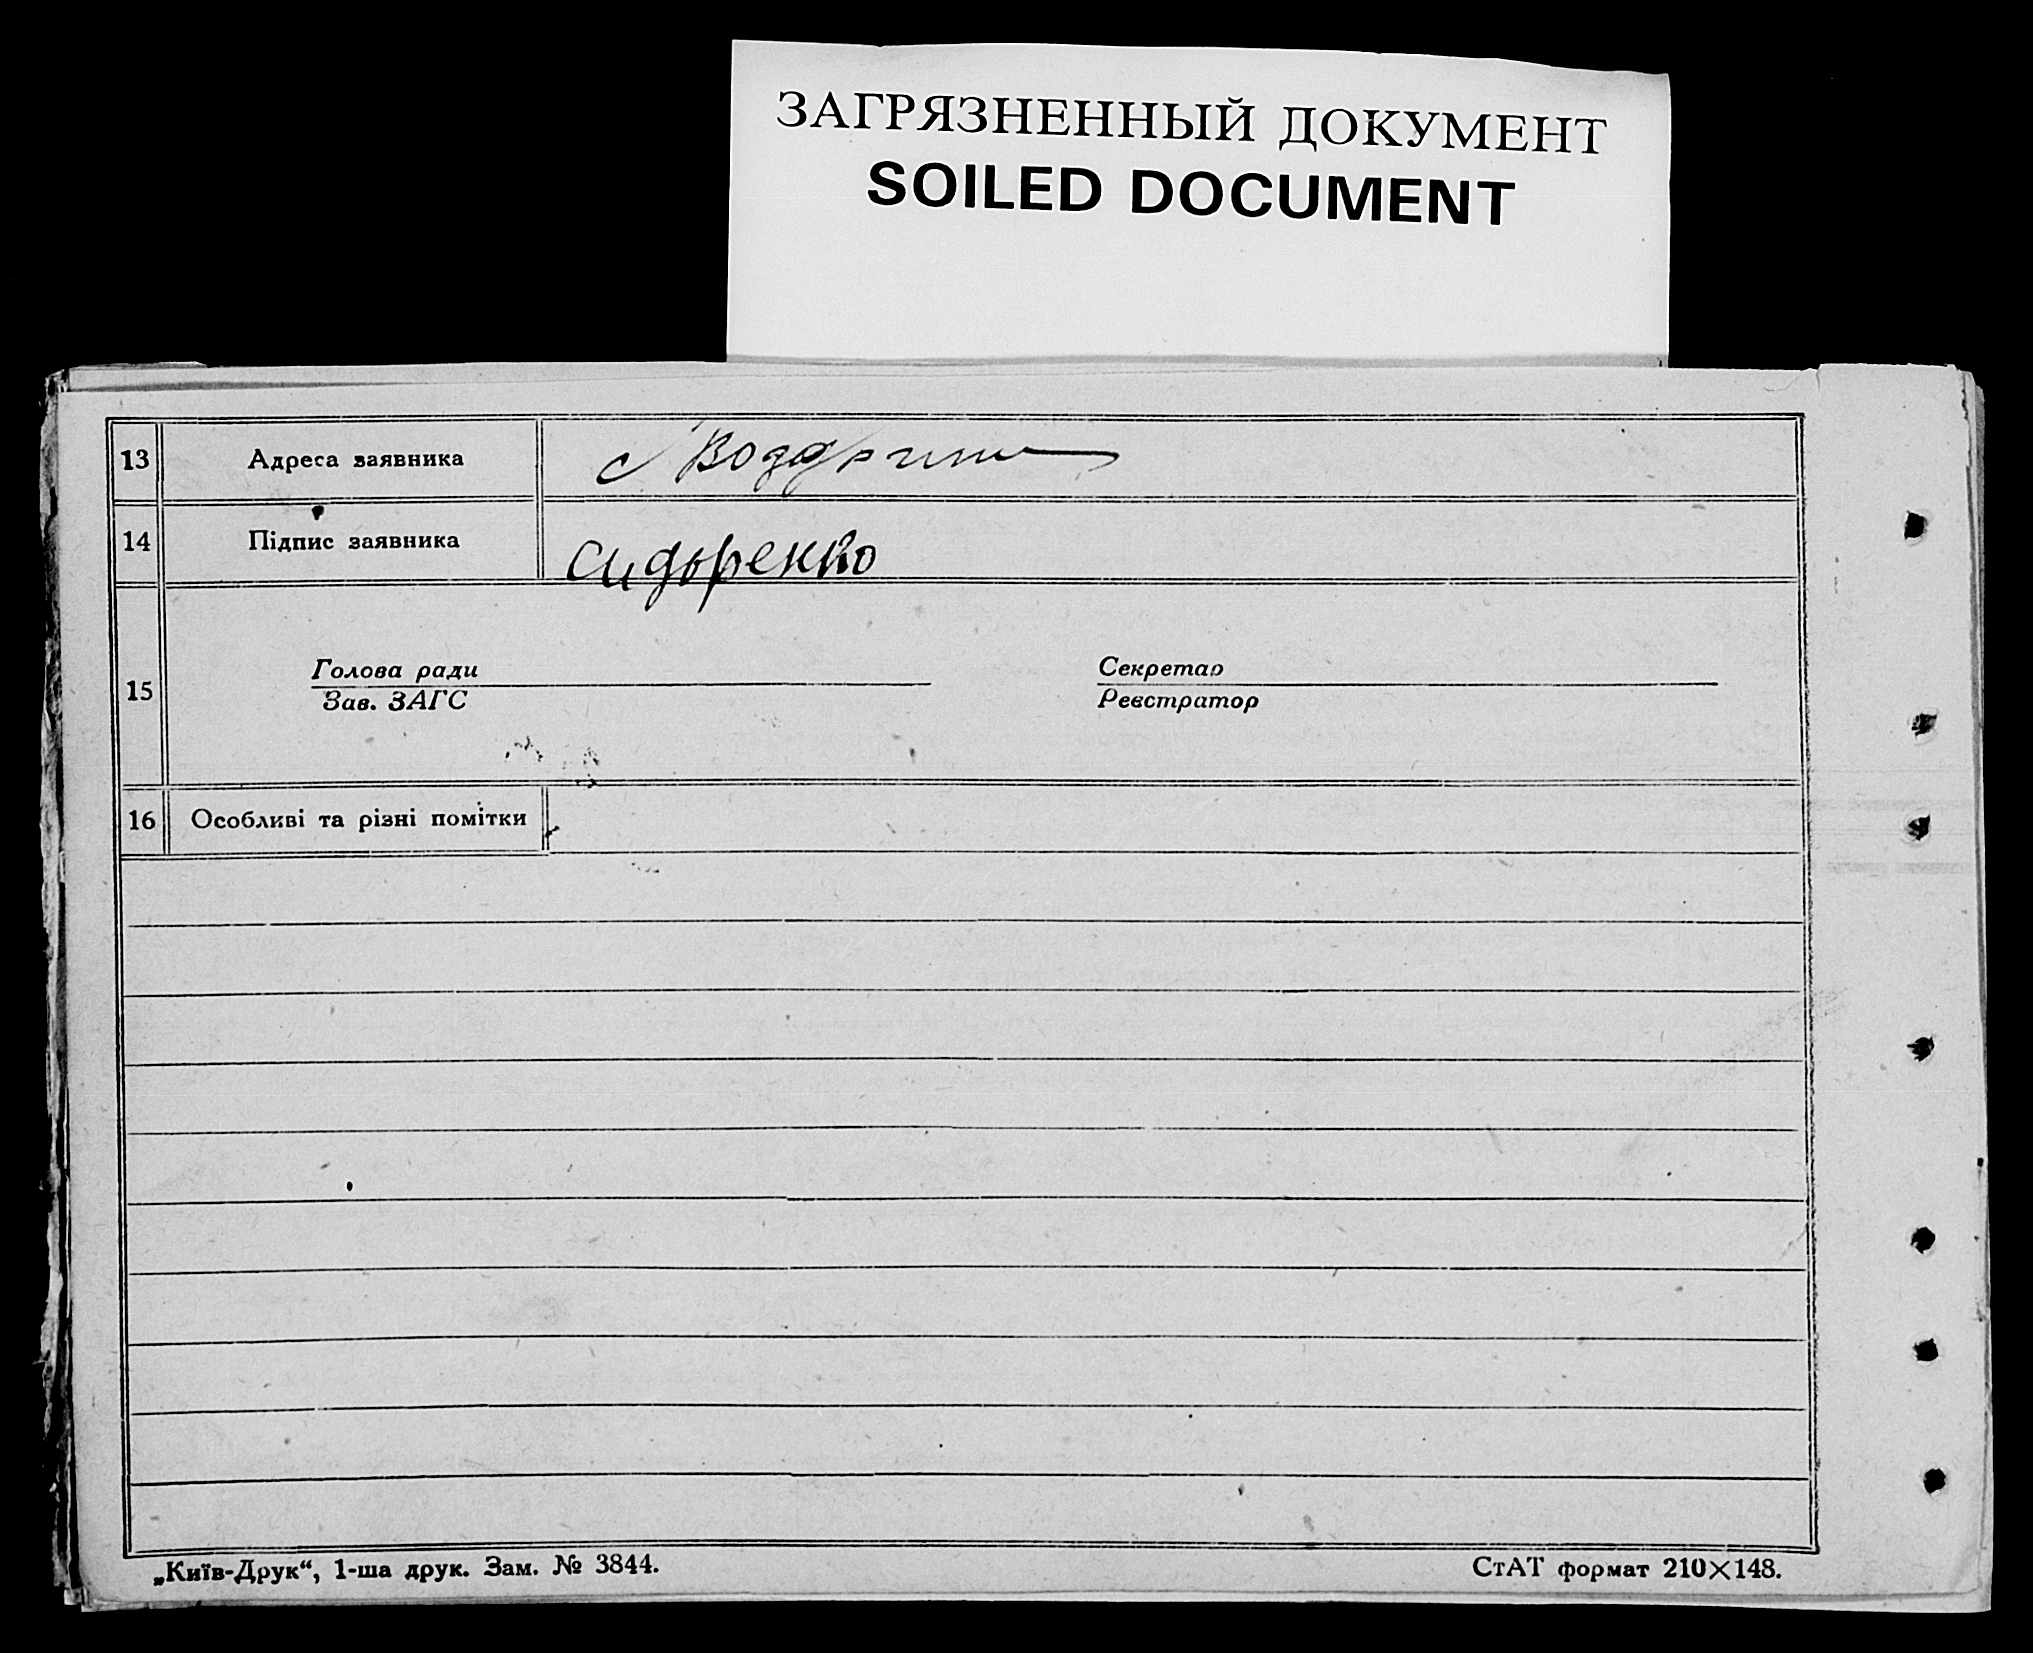 ЗАГРЯЗНЕННЫЙ ДОКУМЕНТ
SOILED DOCUMENT
13 Адреса заявника с
14 Підпис заявника Сидоренко
15
Голова ради Секретар
Зав. ЗАГС Реєстратор
16 Особливі та різні помітки
„Київ-Друк“, 1-ша друк. Зам. № 3844. СтАТ формат 210×148.